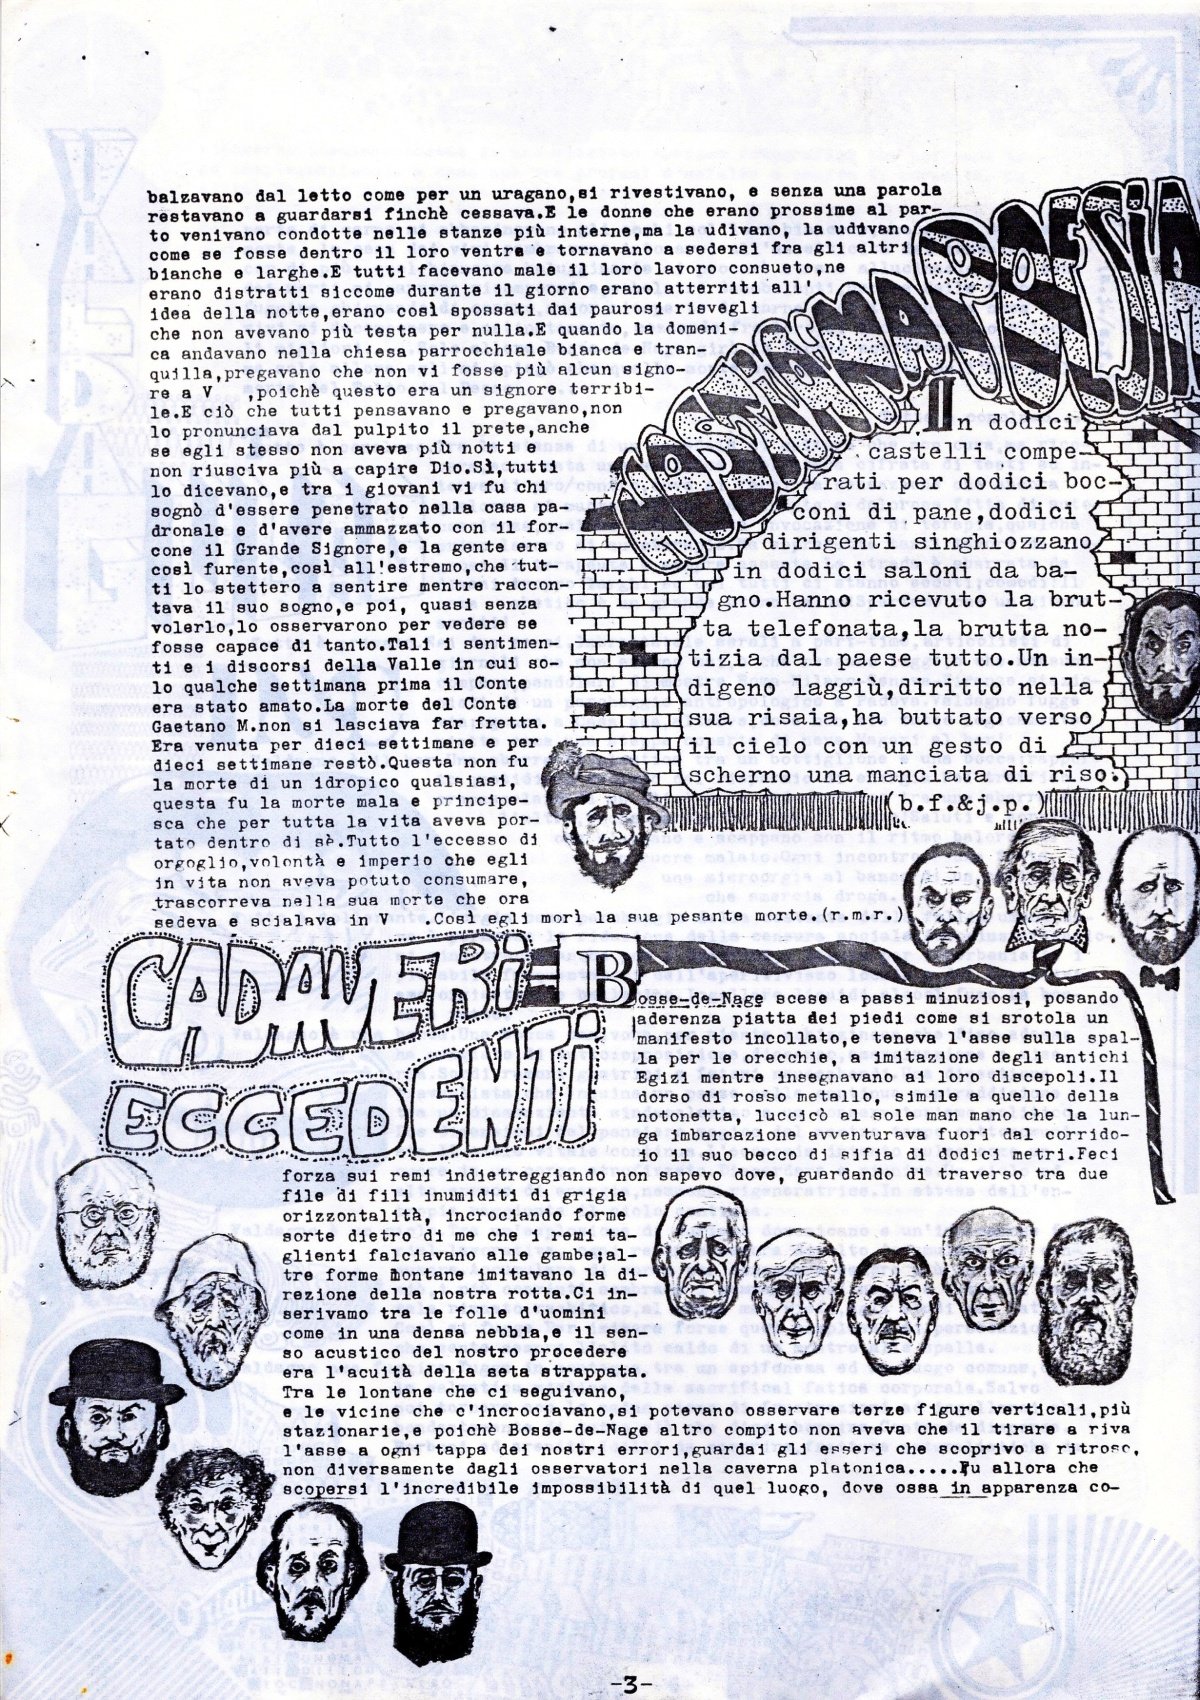 balzavano dal letto come per un uragano,si rivestivano, e senza una parola
restavano a guardarsi finchè cessava.E le donne che erano prossime al par-
to venivano condotte nelle stanze più interne,ma la udivano, la udivano
come se fosse dentro il loro ventre e tornavano a sedersi fra gli altri
bianche e larghe.E tutti facevano male il loro lavoro consueto,ne
erano distratti siccome durante il giorno erano atterriti all'
idea della notte,erano così spossati dai paurosi risvegli
che non avevano più testa per nulla.E quando la domeni-
ca andavano nella chiesa parrocchiale bianca e tran-
quilla,pregavano che non vi fosse più alcun signo-
re a V   ,poichè questo era un signore terribi-
le.E ciò che tutti pensavano e pregavano,non
lo pronunciava dal pulpito il prete,anche
se egli stesso non aveva più notti e
non riusciva più a capire Dio.Sì,tutti
lo dicevano,e tra i giovani vi fu chi
sognò d'essere penetrato nella casa pa-
dronale e d'avere ammazzato con il for-
cone il Grande Signore,e la gente era
così furente,così all'estremo,che tut-
ti lo stettero a sentire mentre raccon-
tava il suo sogno,e poi, quasi senza
volerlo,lo osservarono per vedere se
fosse capace di tanto.Tali i sentimen-
ti e i discorsi della Valle in cui so-
lo qualche settimana prima il Conte
era stato amato.La morte del Conte
Gaetano M.non si lasciava far fretta.
Era venuta per dieci settimane e per
dieci settimane restò.Questa non fu
la morte di un idropico qualsiasi,
questa fu la morte mala e principe-
sca che per tutta la vita aveva por-
tato dentro di sè.Tutto l'eccesso di
orgoglio,volontà e imperio che egli
in vita non aveva potuto consumare,
trascorreva nella sua morte che ora
sedeva e scialava in V   .Così egli morì la sua pesante morte.(r.m.r.)
POESIA
In dodici
castelli compe-
rati per dodici boc-
coni di pane,dodici
dirigenti singhiozzano
in dodici saloni da ba-
gno.Hanno ricevuto la brut-
ta telefonata,la brutta no-
tizia dal paese tutto.Un in-
digeno laggiù,diritto nella
sua risaia,ha buttato verso
il cielo con un gesto di
scherno una manciata di riso.
(b.f.&j.p.)
CADAVERI
ECCEDENTI
Bosse-de-Nage scese a passi minuziosi, posando
aderenza piatta dei piedi come si srotola un
manifesto incollato,e teneva l'asse sulla spal-
la per le orecchie, a imitazione degli antichi
Egizi mentre insegnavano ai loro discepoli.Il
dorso di rosso metallo, simile a quello della
notonetta, luccicò al sole man mano che la lun-
ga imbarcazione avventurava fuori dal corrido-
io il suo becco di sifia di dodici metri.Feci
forza sui remi indietreggiando non sapevo dove, guardando di traverso tra due
file di fili inumiditi di grigia
orizzontalità, incrociando forme
sorte dietro di me che i remi ta-
glienti falciavano alle gambe;al-
tre forme montane imitavano la di-
rezione della nostra rotta.Ci in-
serivamo tra le folle d'uomini
come in una densa nebbia,e il sen-
so acustico del nostro procedere
era l'acuità della seta strappata.
Tra le lontane che ci seguivano,
e le vicine che c'incrociavano,si potevano osservare terze figure verticali,più
stazionarie,e poichè Bosse-de-Nage altro compito non aveva che il tirare a riva
l'asse a ogni tappa dei nostri errori,guardai gli esseri che scoprivo a ritroso,
non diversamente dagli osservatori nella caverna platonica.....Fu allora che
scopersi l'incredibile impossibilità di quel luogo, dove ossa in apparenza co-
-3-